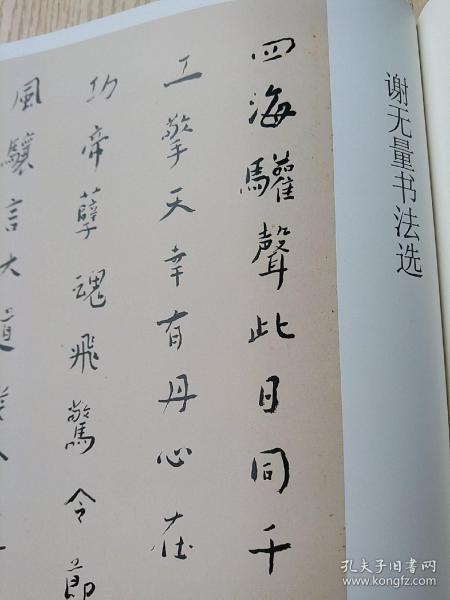 谢无量书法选
四海驩聲此日同千
工擎天幸有丹心在
功帝孽魂飛驚令節
風驤言大道
孔夫子旧书网
www.kongfz.com